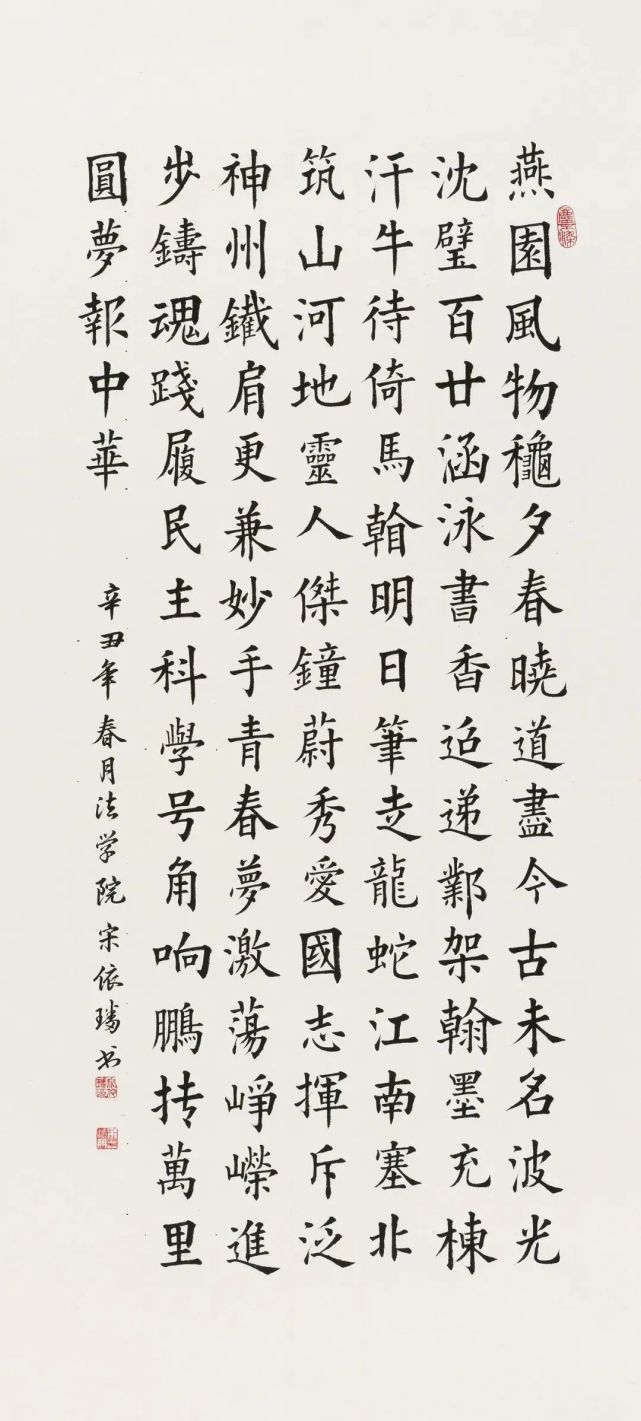 燕園風物龝夕春曉道盡今古未名波光
沈璧百廿涵泳書香迨递鄴架翰墨充棟
汗牛待倚馬翰明日筆走龍蛇江南塞北
筑山河地靈人傑鐘蔚秀愛國志揮斥泛
神州鐵肩更兼妙手青春夢激蕩崢嶸進
步鑄魂踐履民主科學号角响鵬抟萬里
圓夢報中華
辛丑年春月法学院宋依璠书